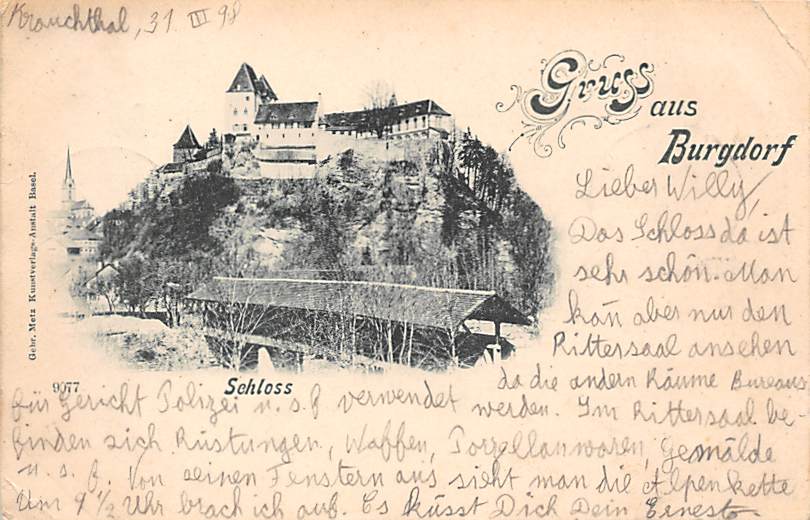 Krauchthal, 31 III 98
Gruss
aus
Burgdorf
Gebr. Metz Kunstverlags-Anstalt Basel.
9077
Schloss
Lieber Willy,
Das Schloss da ist
sehr schön. Man
kan̄ aber nur den
Rittersaal ansehen
da die andern Räume Bureaus
für Gericht Polizei u. s. f verwendet werden. Im Rittersaal be-
finden sich Rüstungen, Waffen, Porzellanwaren, Gemälde
u. s. f. Von seinen Fenstern aus sieht man die Alpenkette
Um 9 1/2 Uhr brach ich auf. Es küsst Dich Dein Ernest